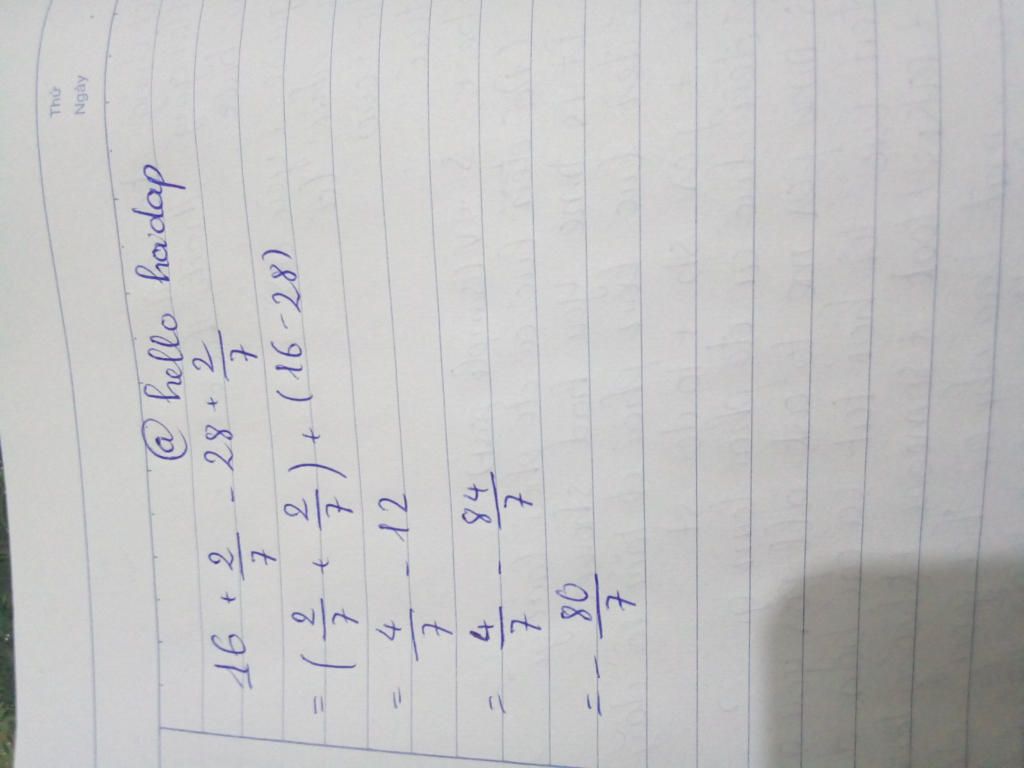 Thứ
Ngày
@ hello hoidap
16 + 2/7 - 28 + 2/7
= (2/7 + 2/7) + (16 - 28)
= 4/7 - 12
= 4/7 - 84/7
= - 80/7